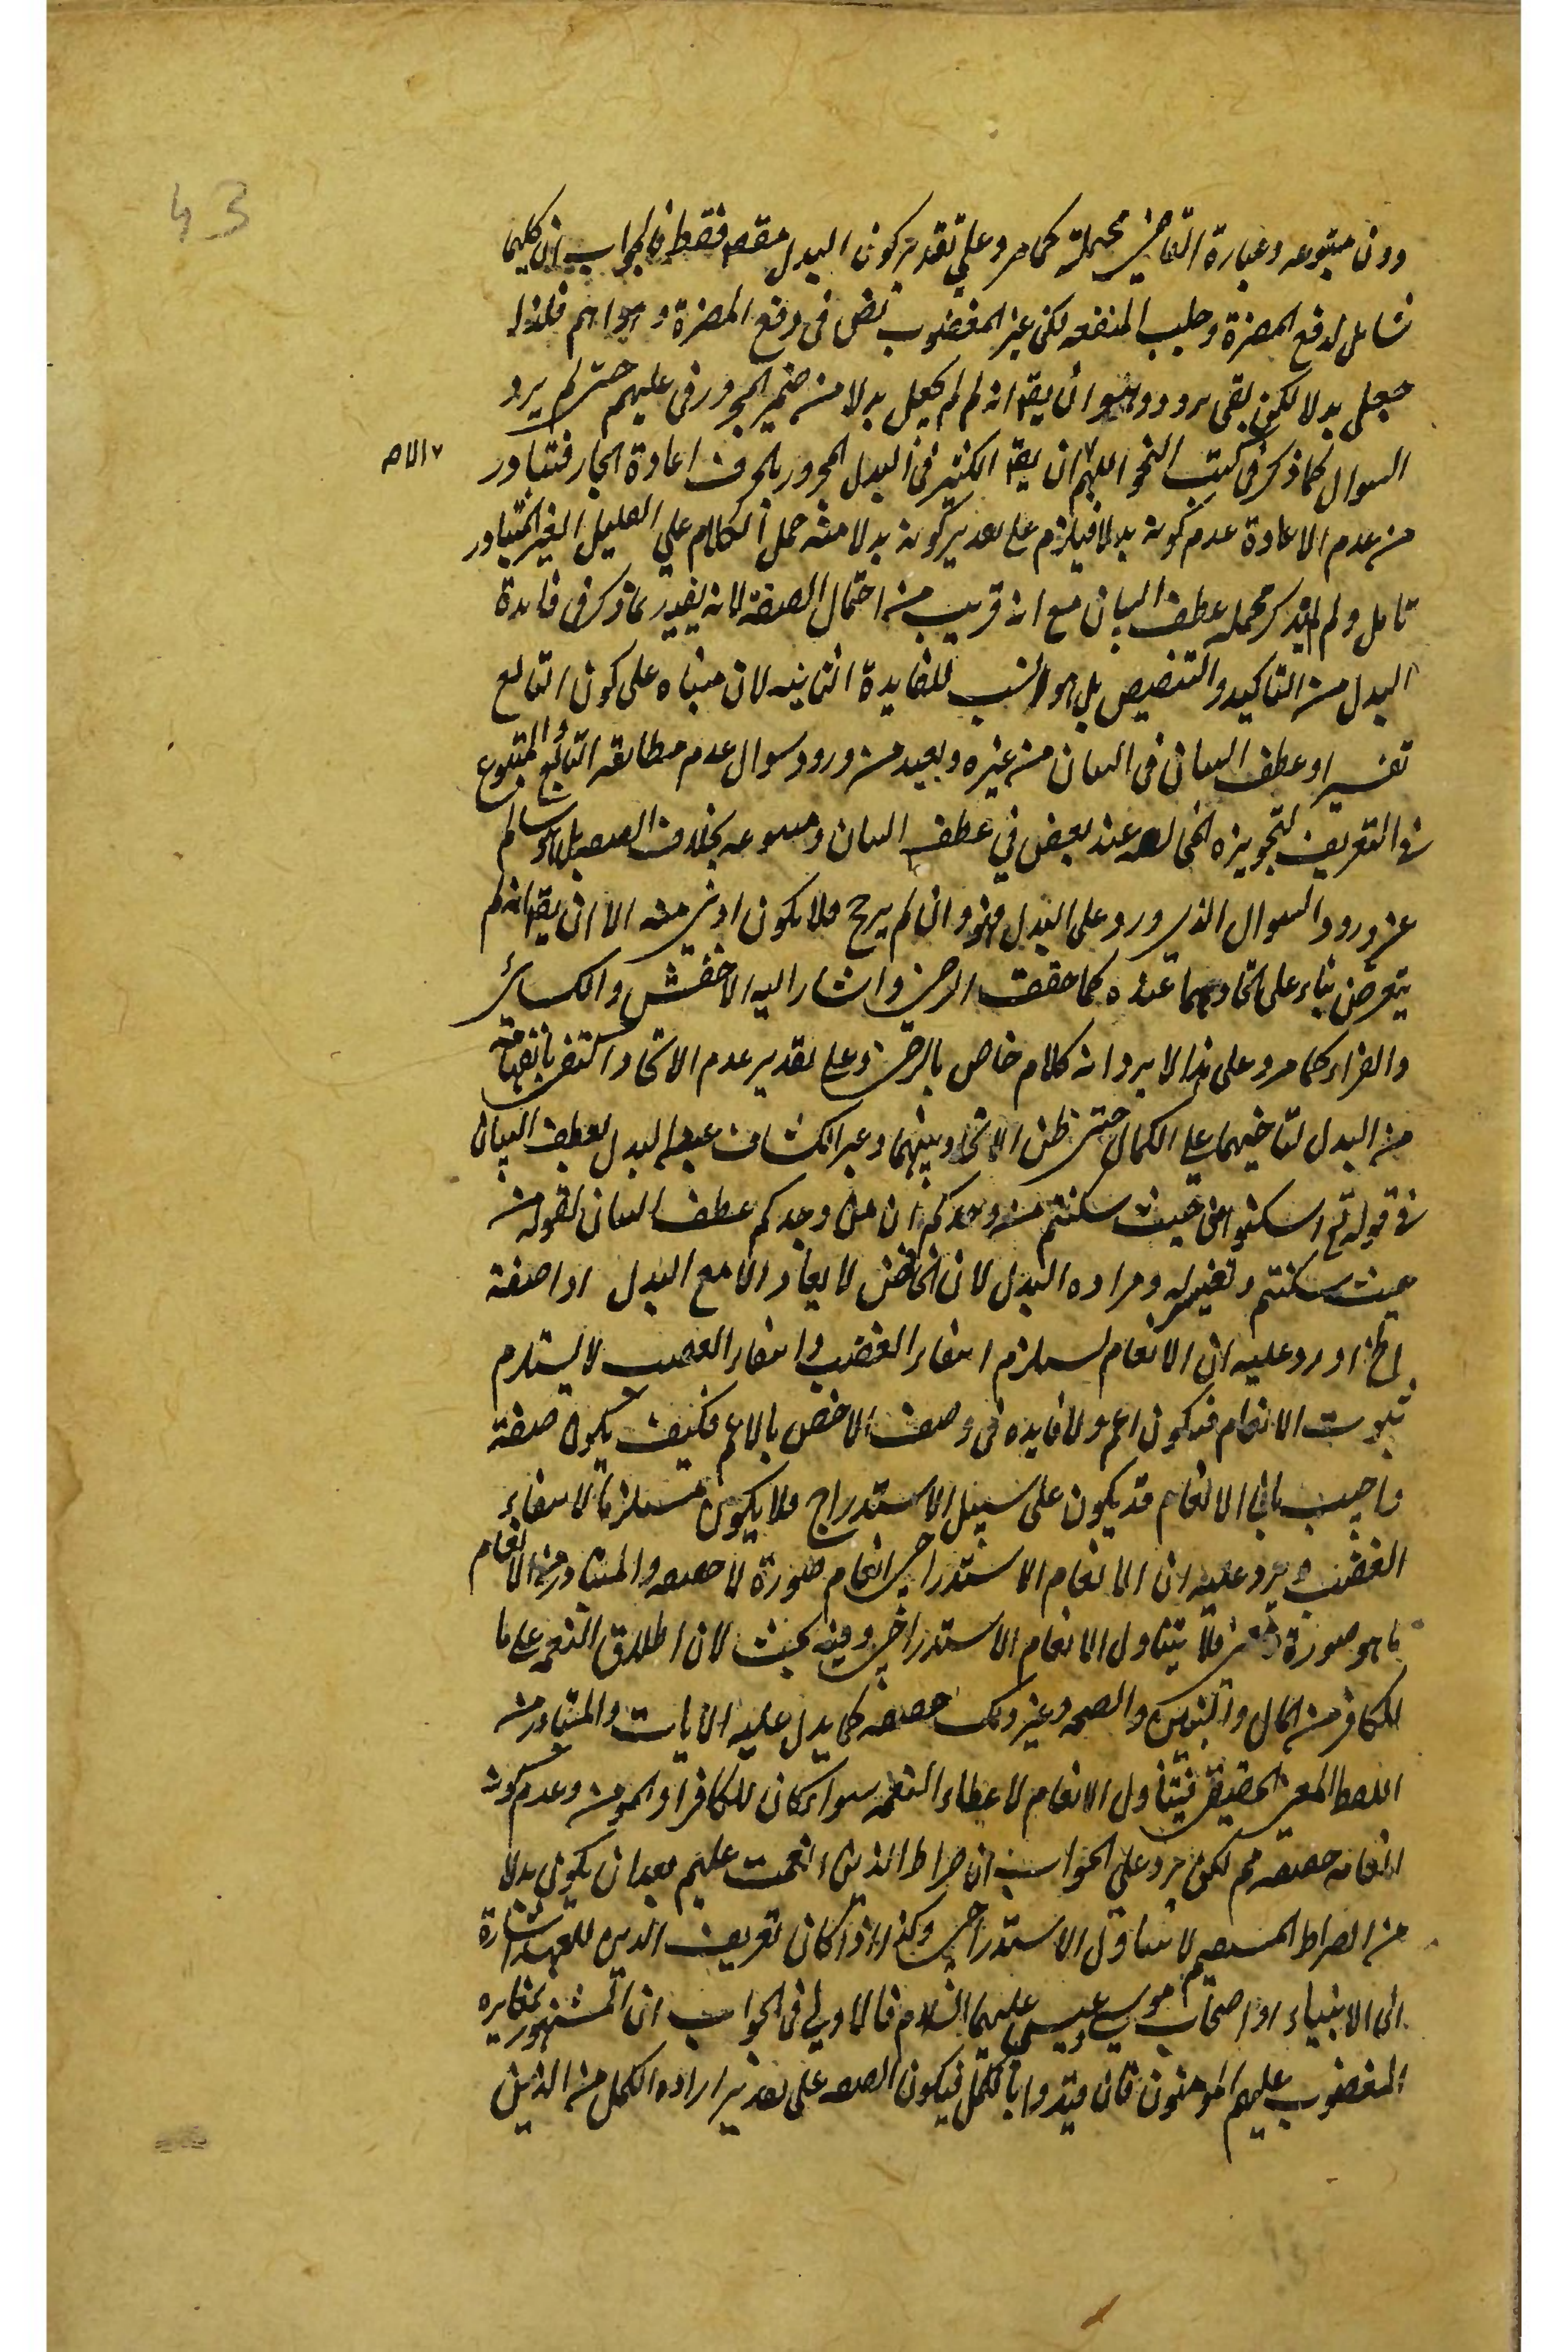 43
دون متبوعه وعبارة القاضى محتملة كما مر وعلى تقدير كون البدل مقصودا فقط فالجواب ان كليهما
شامل لدفع المضرة وجلب المنفعه لكن غير المغضوب نص فى دفع المضرة وهو اهم فلذا
جعل بدلا لكن بقى مردود وهو ان يقا انه لم لم يجعل بدلا من ضمير المجرور فى عليهم حتى لم يرد
السوال كما ذكر فى كتب النحو اللهم ان يقا الكثير فى البدل المجرور بالحرف اعادة الجار فتبادر
الا صح
من عدم الاعادة عدم كونه بدلا فيلزم على تقدير كونه بدلا منه حمل الكلام على القليل الغير المتبادر
تامل ولم يذكر محمله عطف البيان مع انه قريب من احتمال الصفة لانه يفيد ما ذكر فى فايدة
البدل من التاكيد والتنصيص بل هو انسب للفايدة الثانيه لان مبناه على كون التابع
تفسيرا وعطف البيان فى البيان من غيره وبعيد من ورود سوال عدم مطابقه التابع المتبوع
فى التعريف لتجويزه المخالفه عند بعض في عطف البيان ومتبوعه بخلاف الصفه بل هو سالم
عن ورود السوال الذى ورد على البدل فهو وان لم يرجح فلا يكون ادنى منه الا ان يقا انه لم
يتعرض بناء على اتحادهما عنده كما حققه الرضى واشار اليه الاخفش والكسائى
والفراء كما مر وعلى هذا لا يرد انه كلام خاص بالرضى وعلى تقدير عدم الاتحاد اكتفى بانفهامه
من البدل لتاخيهما على الكمال حتى ظن الاتحاد بينهما وعبر الكشاف عن البدل بعطف البيان
فى قوله تع اسكنوهن من حيث سكنتم من وجدكم ان من وجدكم عطف البيان لقوله من
حيث سكنتم وتفسير له ومراده البدل لان الخافض لا يعاد الا مع البدل او صفة
الخ اورد عليه ان الانعام يستلزم انتفاء الغضب وانتفاء الغضب لا يستلزم
ثبوت الانعام فيكون اعم ولا فايده فى وصف الاخص بالاعم فكيف يكون صفة
واجيب بان الانعام قد يكون على سبيل الاستدراج فلا يكون مستلزما لانتفاء
الغضب ويرد عليه ان الانعام الاستدراجى انعام صورة لا حقيقه والمتبادر من الانعام
ما هو صورة ومعنى فلا يتناول الانعام الاستدراجى وفيه بحث لان اطلاق النعمه على ما
للكافر من المال والبنين والصحه وغير ذلك حقيقه كما يدل عليه الايات والمتبادر من
اللفظ المعنى الحقيقى فيتناول الانعام لاعطاء النعمه سواء كان للكافر او المومن وعدم كونه
انعامه حقيقه مم لكن يرد على الجواب ان صراط الذين انعمت عليهم بعد ان يكون بدلا
من الصراط المستقيم لا يتناول الاستدراجى وكذا اذا كان تعريف الذين للعهد اشارة
الى الانبياء او اصحاب موسى وعيسى عليهما السلام فالاولى فى الجواب ان المشهور بمغايره
المغضوب عليهم المومنون فان قيدوا بالكمل فيكون الصفه على تقدير اراده الكمل من الذين